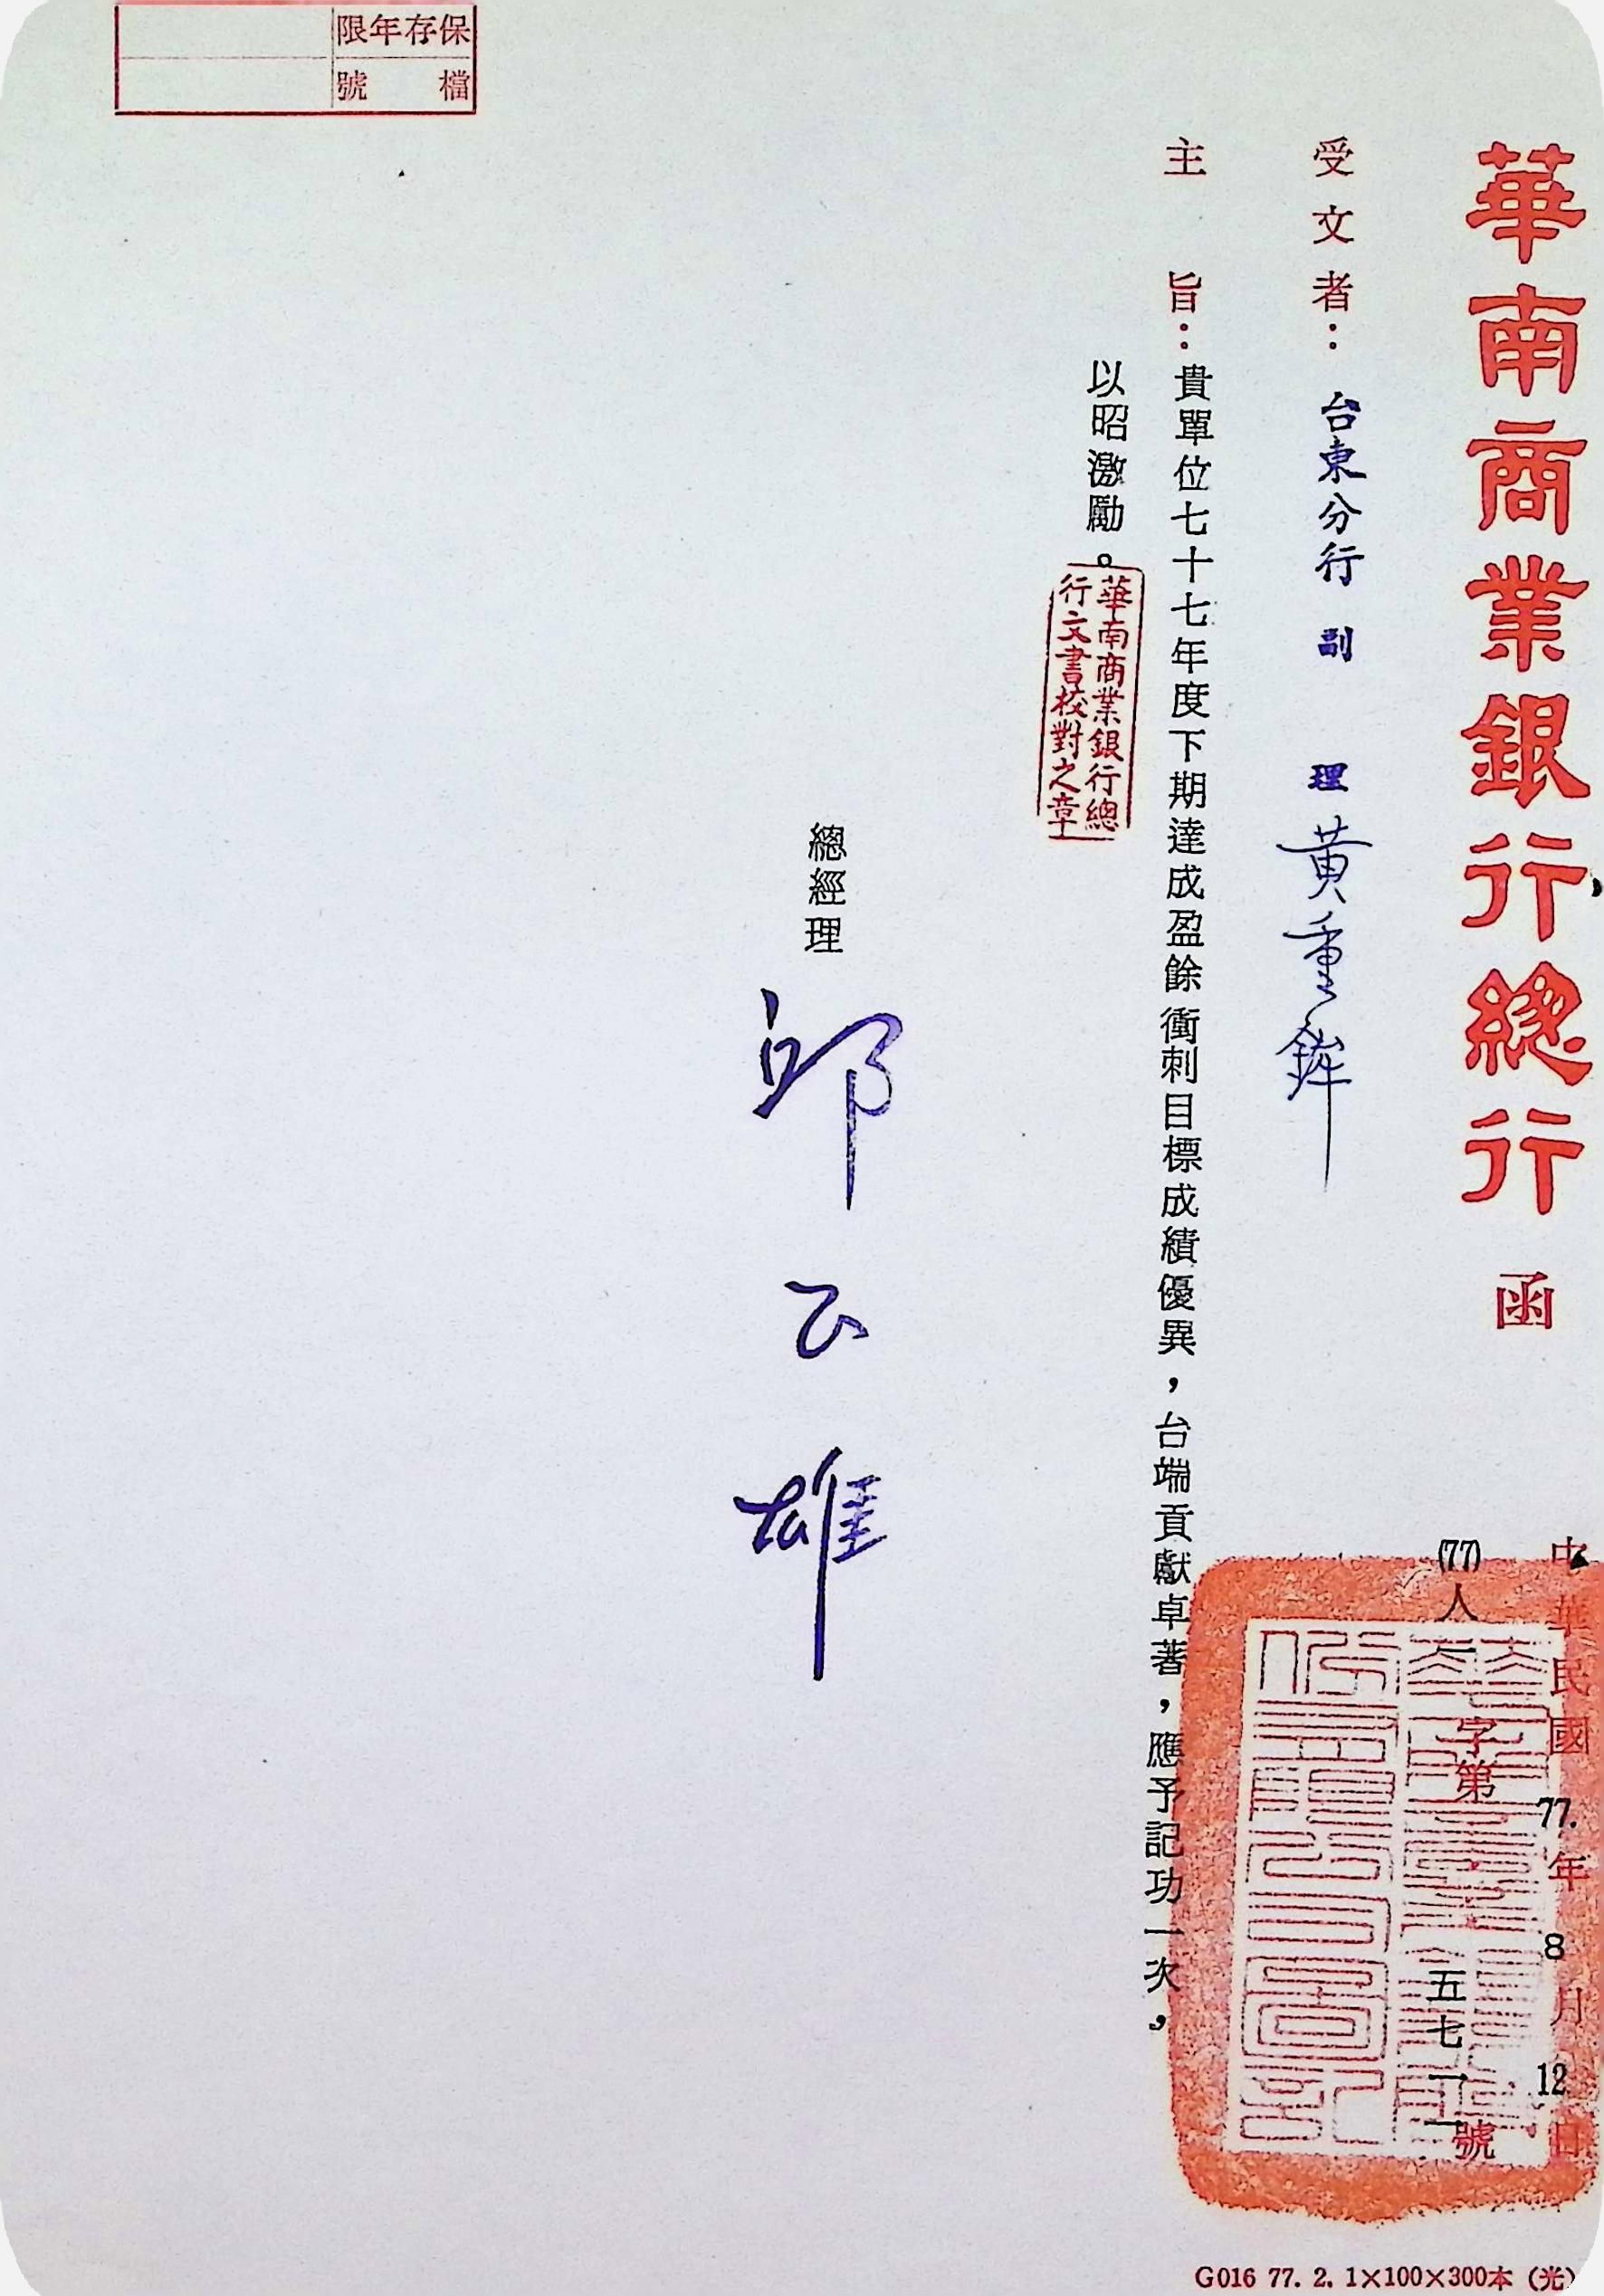 華南商業銀行總行 函
中華民國77.年8月12日
(77)人字第五七一一號
受文者：台東分行 副理 黃重鉾
主旨：貴單位七十七年度下期達成盈餘衝刺目標成績優異，台端貢獻卓著，應予記功一次，
以昭激勵。
華南商業銀行總
行文書校對之章
總經理 邱公雄
保存年限
檔號
G016 77. 2. 1×100×300本 (光)